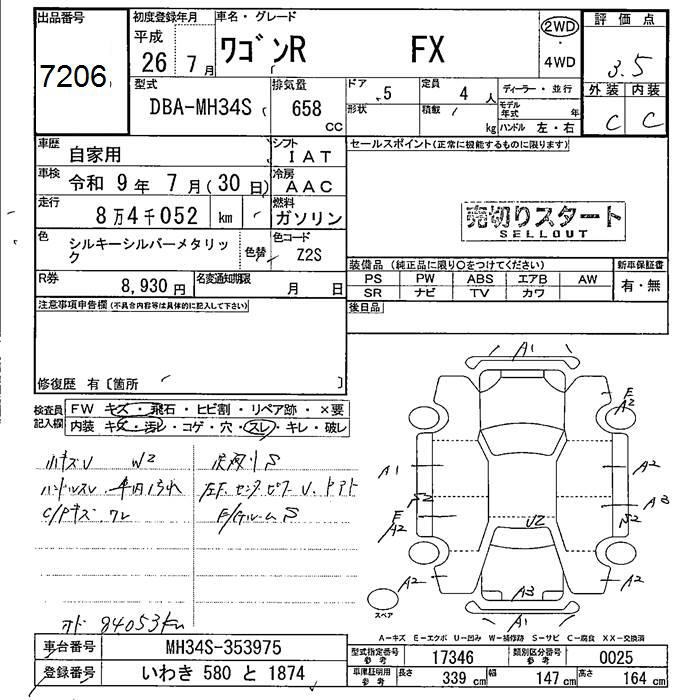 出品番号
7206
初度登録年月
平成
26 7月
車名・グレード
ワゴンR FX
2WD
・
4WD
評価点
3.5
外装 内装
C C
型式
DBA-MH34S
排気量
658 cc
ドア
5
定員
4 人
形状
積載
kg
ディーラー・並行
モデル年式 年
ハンドル 左・右
車歴
自家用
シフト
IAT
車検
令和 9年 7月(30日)
冷房
AAC
走行
8万4千052 km
燃料
ガソリン
色
シルキーシルバーメタリック
色替
色コード
Z2S
R券
8,930円
名変通知期限
月 日
セールスポイント(正常に機能するものに限ります)
売切りスタート
SELLOUT
装備品(純正品に限り○をつけてください)
PS PW ABS エアB AW
SR ナビ TV カワ
新車保証書
有・無
後日品
注意事項申告欄(不具合内容等は具体的に記入して下さい)
修復歴 有〔箇所 〕
検査員記入欄
FW キズ・飛石・ヒビ割・リペア跡・×要
内装 キズ・汚レ・コゲ・穴・スレ・キレ・破レ
小キズU W2
ハンドルスレ
C/Pキズ
84053km
A1
E
A2
A1
A2
A3
S2
E
A2
S2
U2
A2
A3
A2
A1
スペア
A-キズ E-エクボ U-凹み W-補修跡 S-サビ C-腐食 XX-交換済
車台番号
MH34S-353975
登録番号
いわき 580 と 1874
型式指定番号
参考
17346
類別区分番号
参考
0025
車庫証明用
参考
長さ
339 cm
幅
147 cm
高さ
164 cm